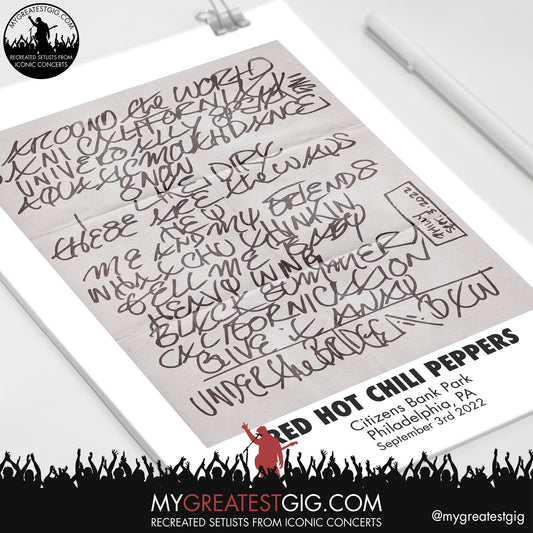 MYGREATESTGIG.COM
RECREATED SETLISTS FROM
ICONIC CONCERTS
AROUND the WORLD
DANI CALIFORNIA
UNIVERSALLY SPEAKING
AQUATIC MOUTH DANCE
SNOW
I LIKE DIRT
THESE ARE the WAYS
ME AND MY FRIENDS
WHATCHU THINKIN
TELL ME BABY
HEAVY WING
BLACK SUMMER
CALIFORNICATION
GIVE it AWAY
UNDER the BRIDGE BYW
PHILLY
SEPT 3 2022
RED HOT CHILI PEPPERS
Citizens Bank Park
Philadelphia, PA
September 3rd 2022
MYGREATESTGIG.COM
RECREATED SETLISTS FROM ICONIC CONCERTS
@mygreatestgig